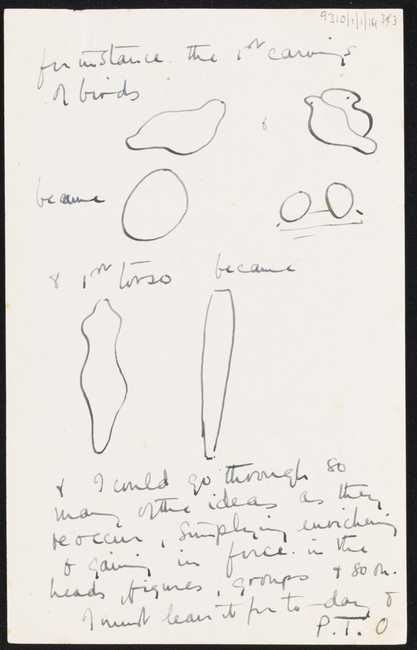 9310/1/1/14 343
for instance. the 1st carvings
of birds
&
became
& 1st torso became
& I could go through so
many of the ideas as they
reoccur, simplifying enriching
& gaining in force. in the
heads, figures, groups & so on.
I must leave it for to-day &
P.T.O